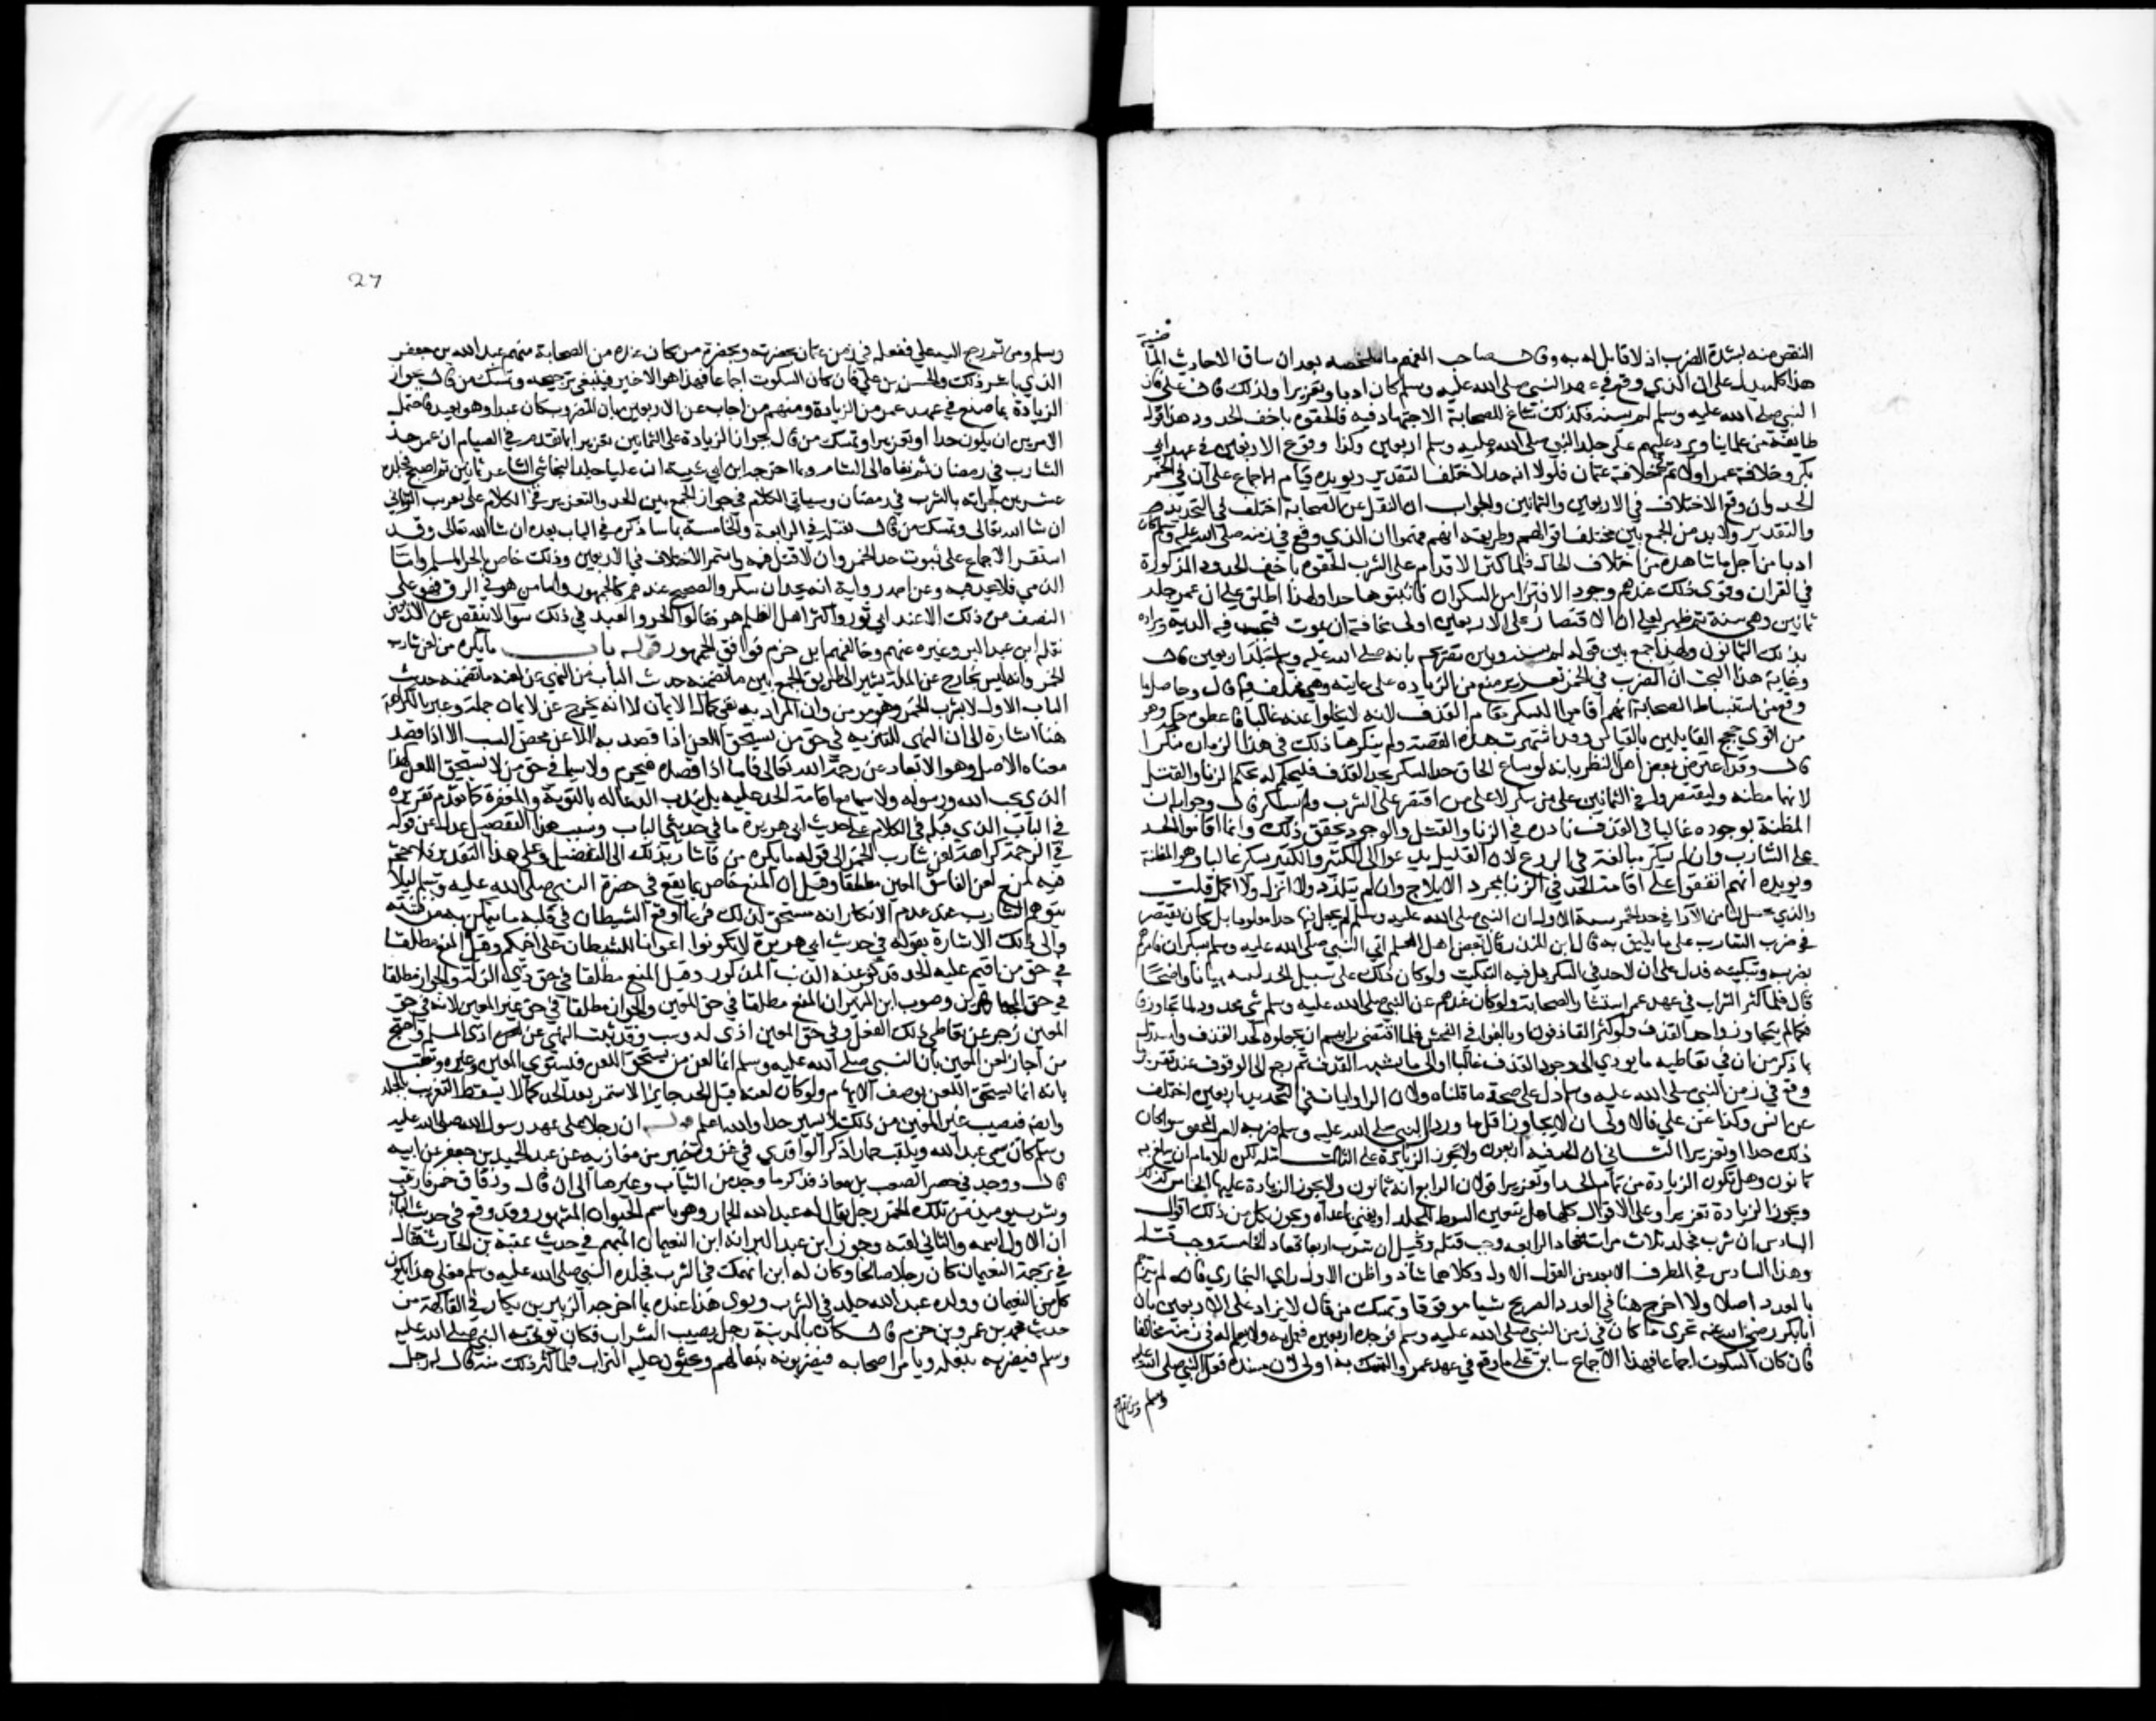 النقص منه لشدة الضرب اذ لا قابل به وقال صاحب المفهم ما ملخصه بعد ان ساق الاحاديث الماضية
هذا كله يدل على ان الذي وقع في عهد النبي صلى الله عليه وسلم كان ادبا وتعزيرا ولذلك قال علي فان
النبي صلى الله عليه وسلم لم يسنه فلذلك ساغ للصحابة الاجتهاد فيه فالحقوه باخف الحدود وهذا قول
طايفة من علماينا ويرد عليهم قول علي جلد النبي صلى الله عليه وسلم اربعين وكذا وقوع الاربعين في عهد ابي
بكر وفي خلافة عمر اولا ثم في خلافة عثمان فلولا انه حد لاختلف التقدير ويويده قيام الاجماع على ان في الخمر
الحد وان وقع الاختلاف في الاربعين والثمانين والجواب ان النقل عن الصحابة اختلف في التحديد
والتقدير ولابد من الجمع بين مختلف اقوالهم وطريقه انهم فهموا ان الذي وقع في زمنه صلى الله عليه وسلم كان
ادبا من اجل ما شاهده من اختلاف الحال فلما كثر الاقدام على الشرب الحقوه باخف الحدود المذكورة
في القران وقوى ذلك عندهم وجود الافترا من السكران فاثبتوها حدا ولهذا اطلق علي ان عمر جلد
ثمانين وهي سنة ثم ظهر لعلي ان الاقتصار على الاربعين اولى مخافة ان يموت فتجب فيه الدية ومراده
بذلك الثمانون وبهذا يجمع بين قوله لم يسنه وبين تصريحه بانه صلى الله عليه وسلم جلد اربعين قال
وغاية هذا البحث ان الضرب في الخمر تعزير يمنع من الزيادة على غايته وهي مختلف فيها قال وحاصل ما
وقع من استنباط الصحابة انهم اقاموا السكر مقام القذف لانه لا يخلوا عنه غالبا فاعطوه حكمه وهو
من اقوى حجج القايلين بالقياس وقد اشتهرت هذه القصة ولم ينكرها ذلك في هذا الزمان منكر
قال وقد اعترض بعض اهل النظر بانه لو ساغ الحاق حد السكر بحد القذف فليحكم له بحكم الزنا والقتل
لانها مظنته وليقتصروا في الثمانين على من سكر لا على من اقتصر على الشرب ولم يسكر قال وجوابه ان
المظنة موجوده غالبا في القذف نادرة في الزنا والقتل والوجود يحقق ذلك وانما اقاموا الحد
على الشارب وان لم يسكر مبالغة في الردع لان القليل يدعوا الى الكثير والكثير يسكر غالبا وهو المظنة
ويويده انهم اتفقوا على اقامة الحد في الزنا بمجرد الايلاج وان لم يتلذذ ولا انزل ولا اكمل قلت
والذي تحصل لنا من الآرا في حد الخمر ستة الاول ان النبي صلى الله عليه وسلم لم يجعل فيها حدا معلوما بل كان يقتصر
في ضرب الشارب على ما يليق به قال ابن المنذر قال بعض اهل العلم اتي النبي صلى الله عليه وسلم بسكران فامرهم
بضربه وتبكيته فدل على ان لا حد في السكر بل فيه التنكيت ولو كان ذلك على سبيل الحد لبينه بيانا واضحا
قال فلما كثر الشراب في عهد عمر استشار الصحابة ولو كان عندهم عن النبي صلى الله عليه وسلم شي محدود لما تجاوزه
كما لم يتجاوزوا حد القذف ولو كثر القاذفون وبالغوا في الفحش فلما اقتضى رايهم ان يجعلوه كحد القذف واستدل
بما ذكر من ان في تعاطيه ما يودي الى وجود القذف غالبا او الى ما يشبه القذف ثم رجع الى الوقوف عند تقرير ما
وقع في زمن النبي صلى الله عليه وسلم دل على صحة ما قلناه ولان الروايات في التحديد باربعين اختلفت
عن انس وكذا عن علي فالاولى ان لا يتجاوز اقل ما ورد ان النبي صلى الله عليه وسلم ضربه لانه المحقق سوا كان
ذلك حدا او تعزيرا الثاني ان الحد فيه اربعون ولا تجوز الزيادة عليها الثالث مثله لكن للامام ان يبلغ به
ثمانون وهل تكون الزيادة من تمام الحد او تعزيرا قولان الرابع انه ثمانون ولا يجوز الزيادة عليها الخامس كذلك
ويجوز الزيادة تعزيرا وعلى الاقوال كلها هل يتعين السوط للجلد او يتعين بما عداه ويجوز بكل من ذلك اقوال
السادس ان شرب فجلد ثلاث مرات فعاد الرابعة وجب قتله وقيل ان شرب اربعا فعاد الخامسة وجب قتله
وهذا السادس في الطرف الابعد من القول الاول وكلاهما شاذ واظن الاول راي البخاري فانه لم يترجم
بالعدد اصلا ولا اخرج هنا في العدد الصريح شيا مرفوعا وتمسك من قال لا يزاد على الاربعين بان
ابابكر رضي الله عنه تحرى ما كان في زمن النبي صلى الله عليه وسلم فوجده اربعين فعمل به ولا يعلم له في زمنه مخالفا
فان كان السكوت اجماعا فهذا الاجماع سابق على ما وقع في عهد عمر والتمسك به اولى لان مستنده فعل النبي صلى الله عليه
وسلم ومن ثم رجع
27
وسلم ومن ثم رجع اليه علي ففعله في زمن عثمان بحضرته وبحضرة من كان عنده من الصحابة منهم عبد الله بن جعفر
الذي باشر ذلك والحسن بن علي فان كان السكوت اجماعا فهذا هو الاخير فينبغي ترجيحه وتمسك من قال بجواز
الزيادة بما صنع في عهد عمر من الزيادة ومنهم من اجاب عن الاربعين بان المضروب كان عبدا وهو بعيد فاحتمل
الامرين ان يكون حدا او تعزيرا وتمسك من قال بجواز الزيادة على الثمانين تعزيرا بما تقدم في الصيام ان عمر حد
الشارب في رمضان ثم نفاه الى الشام وبما اخرجه ابن ابي شيبة ان عليا جلد النجاشي الشاعر ثمانين ثم اصبح فجلده
عشرين بجراته بالشرب في رمضان وسياتي الكلام في جواز الجمع بين الحد والتعزير في الكلام على تغريب الزاني
ان شا الله تعالى وتمسك من قال بقتله في الرابعة والخامسة بما ساذكره في الباب بعده ان شا الله تعالى وقد
استقر الاجماع على ثبوت حد الخمر وان لا قتل فيه واستمر الاختلاف في الاربعين وذلك خاص بالحر المسلم واما
الذمي فلا يحد فيه وعن احمد رواية انه يحد ان سكر والصحيح عندهم كالجمهور واما من هو في الرق فهو على
النصف من ذلك الا عند ابي ثور واكثر اهل الظاهر فقالوا الحر والعبد في ذلك سوا لا ينقص عن الاربعين
نقله ابن عبد البر وغيره عنهم وخالفهم ابن حزم فوافق الجمهور قوله باب ما يكره من لعن شارب
الخمر وانه ليس بخارج عن الملة يشير الى طريق الجمع بين ما تضمنه حديث الباب من النهي عن لعنه وما تضمنه حديث
الباب الاول لا يشرب الخمر وهو مومن وان المراد به نفي كمال الايمان لا انه يخرج عن الايمان جملة وعبر بالكراهة
هنا اشارة الى ان النهي للتنزيه في حق من يستحق اللعن اذا قصد به اللاعن محض السب لا اذا قصد
معناه الاصلي وهو الابعاد عن رحمة الله تعالى فاما اذا قصده فيحرم ولا سيما في حق من لا يستحق اللعن كهذا
الذي يحب الله ورسوله ولا سيما مع اقامة الحد عليه بل يندب الدعا له بالتوبة والمغفرة كما تقدم تقريره
في الباب الذي قبله في الكلام على حديث ابي هريرة ما في حديثي الباب وبسبب هذا التفصيل عدل عن قوله
في الترجمة كراهة لعن شارب الخمر الى قوله ما يكره من فاشار بذلك الى التفصيل وعلى هذا التقدير فلا حجة
فيه لمنع لعن الفاسق المعين مطلقا وقيل ان المنع خاص بما يقع في حضرة النبي صلى الله عليه وسلم ليلا
يتوهم الشارب عند عدم الانكار انه مستحق لذلك فربما اوقع الشيطان في قلبه ما يتمكن به من فتنته
والى ذلك الاشارة بقوله في حديث ابي هريرة لا تكونوا اعوانا للشيطان على اخيكم وقيل المنع مطلقا
في حق من اقيم عليه الحد قد كفر عنه الذنب المذكور وقيل المنع مطلقا في حق ذي الزلة والجواز مطلقا
في حق المجاهرين وصوب ابن المنير ان المنع مطلقا في حق المعين والجواز مطلقا في حق غير المعين لانه في حق
المعين زجر عن تعاطي ذلك الفعل وفي حق المعين اذى له وسب وقد ثبت النهي عن اذى المسلم واحتج
من اجاز لعن المعين بان النبي صلى الله عليه وسلم انما لعن من يستحق اللعن فيستوي المعين وغيره وتعقب
بانه انما يستحق اللعن بوصف الابهام ولو كان لعنه قبل الحد جايزا لاستمر بعد الحد كما لا يسقط التغريب بالجلد
وايضا فنصيب غير المعين من ذلك يسير جدا والله اعلم قوله ان رجلا على عهد رسول الله صلى الله عليه
وسلم كان يسمى عبد الله ويلقب حمارا ذكر الواقدي في غزوة خيبر من مغازيه عن عبد الحميد بن جعفر عن ابيه
قال ووجد في حصن الصعب بن معاذ فذكر ما وجد من الثياب وغيرها الى ان قال وزقاق خمر فاريقت
وشرب يوميذ من تلك الخمر رجل يقال له عبد الله الحمار وهو باسم الحيوان المشهور وقد وقع في حديث الباب
ان الاول اسمه والثاني لقبه وجوز ابن عبد البر انه ابن النعيمان المبهم في حديث عقبة بن الحارث فقال
في ترجمة النعيمان كان رجلا صالحا وكان له ابن انهمك في الشرب فجلده النبي صلى الله عليه وسلم فعلى هذا يكون
كل من النعيمان وولده عبد الله جلد في الشرب وقوى هذا عنده بما اخرجه الزبير بن بكار في الفاكهة من
حديث محمد بن عمرو بن حزم قال كان بالمدينة رجل يصيب الشراب فكان يوتى به النبي صلى الله عليه
وسلم فيضربه بنعله ويامر اصحابه فيضربونه بنعالهم ويحثون عليه التراب فلما كثر ذلك منه قال له رجل